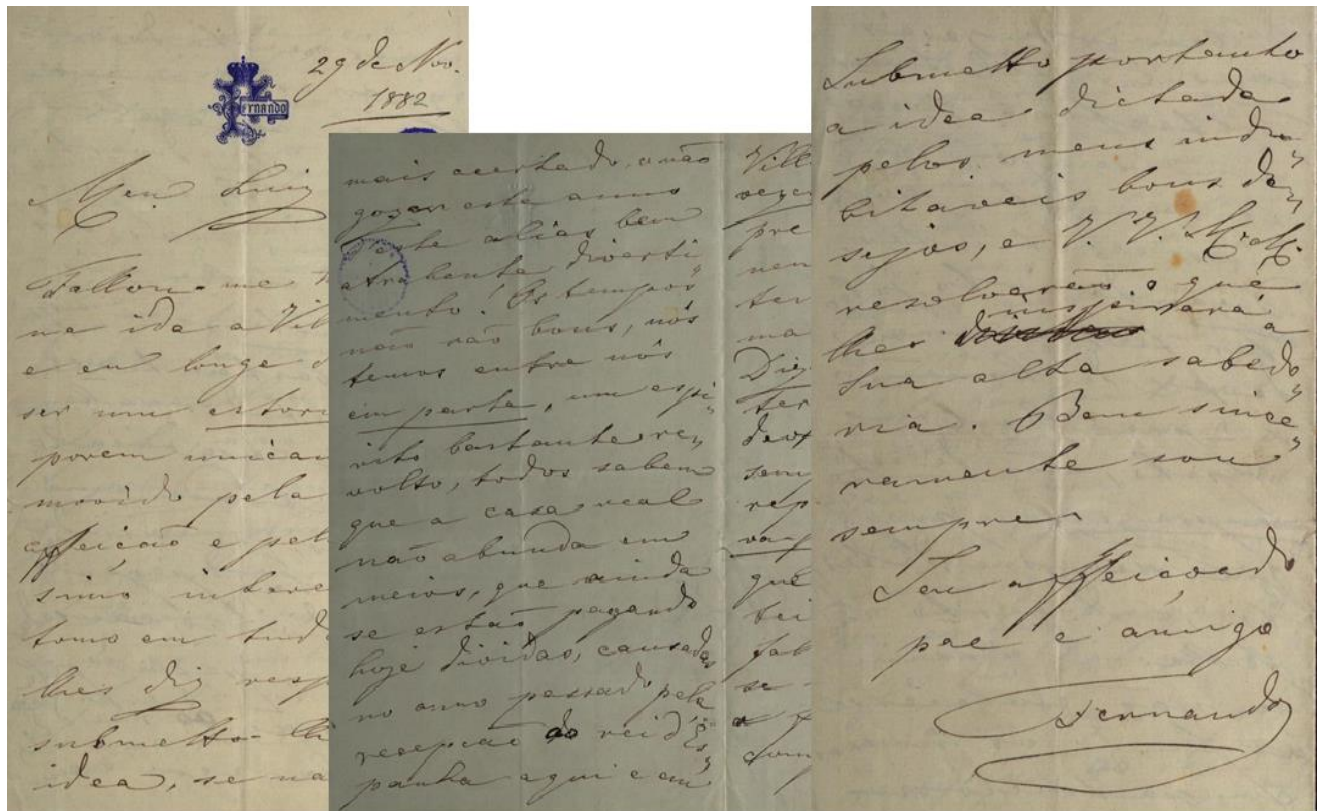 29 de Nov.
1882
Fernando
Meu Luiz
Fallou-me
na ida a Vil
e eu longe d
ser um estor
porem unicam
movido pela
affeição e pel
simo intere
tomo em tud
lhes diz resp
submetto-
idea, se na
mais acertado, o não
gozar este anno
este alias bem
atrahente diverti„
mento! Os tempos
não são bons, nós
temos entre nós
em parte, um espi„
rito bastante re„
volto, todos sabem
que a casa real
não abunda em
meios, que ainda
se estão pagando
hoje dividas, causadas
no anno passado pela
recepção do rei d'Es„
panha aqui e em
Vill
vezes
pre
nem
ter
ma
Diz
Ter
deix
sem
rep
va
que
tei
fal
se
a
com
Submetto portanto
a idea dictada
pelos meus indu„
bitaveis bons de„
sejos, e V. V. M. M.
resolverão o que
lhes inspirará a
Sua alta sabedo„
ria. Bem since„
ramente sou
sempre
Seu affeiçoado
pae e amigo
Fernando